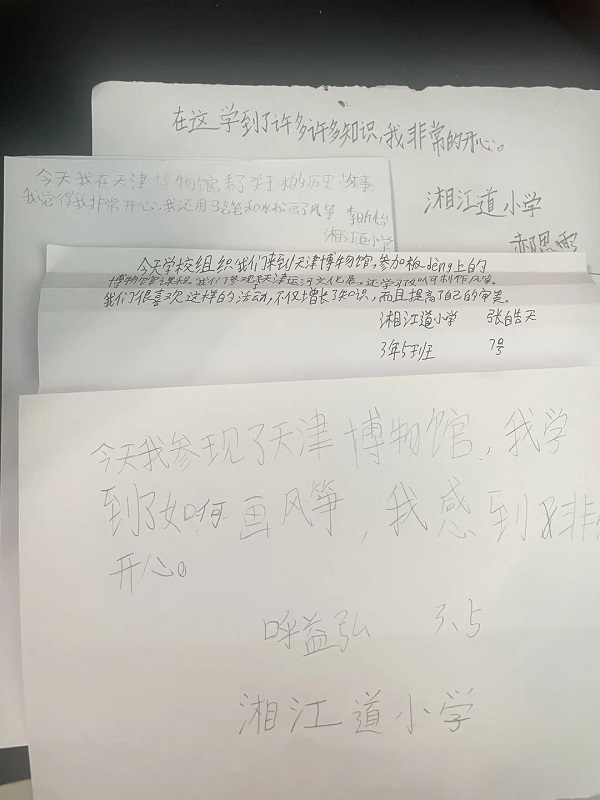 在这学到了许多许多知识,我非常的开心。
湘江道小学
郝思雨
今天我在天津博物馆,看了关于的历史故事
我觉得我非常开心,我还用了毛笔和水粉画了风筝
湘江道小学
今天学校组织我们来到天津博物馆,参加板deng上的
博物馆课程。我们参观天津运河文化展,还学习如何制作风筝。
我们很喜欢这样的活动,不仅增长了知识,而且提高了自己的审美。
湘江道小学 张皓天
3年5班 7号
今天我参现了天津博物馆,我学
到了如何画风筝,我感到非
开心。
益弘 3.5
湘江道小学